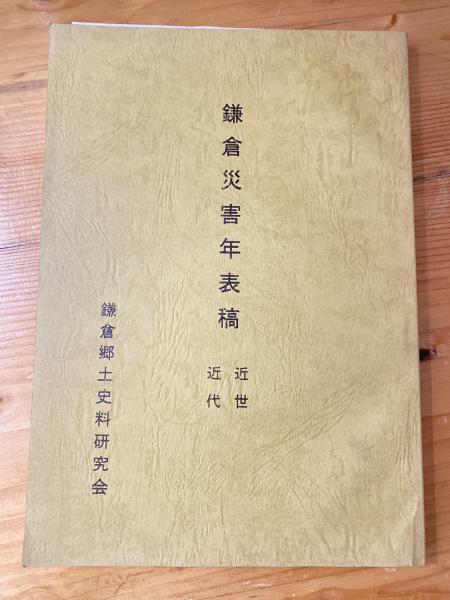 鎌倉災害年表稿
近世
近代
鎌倉郷土史料研究会